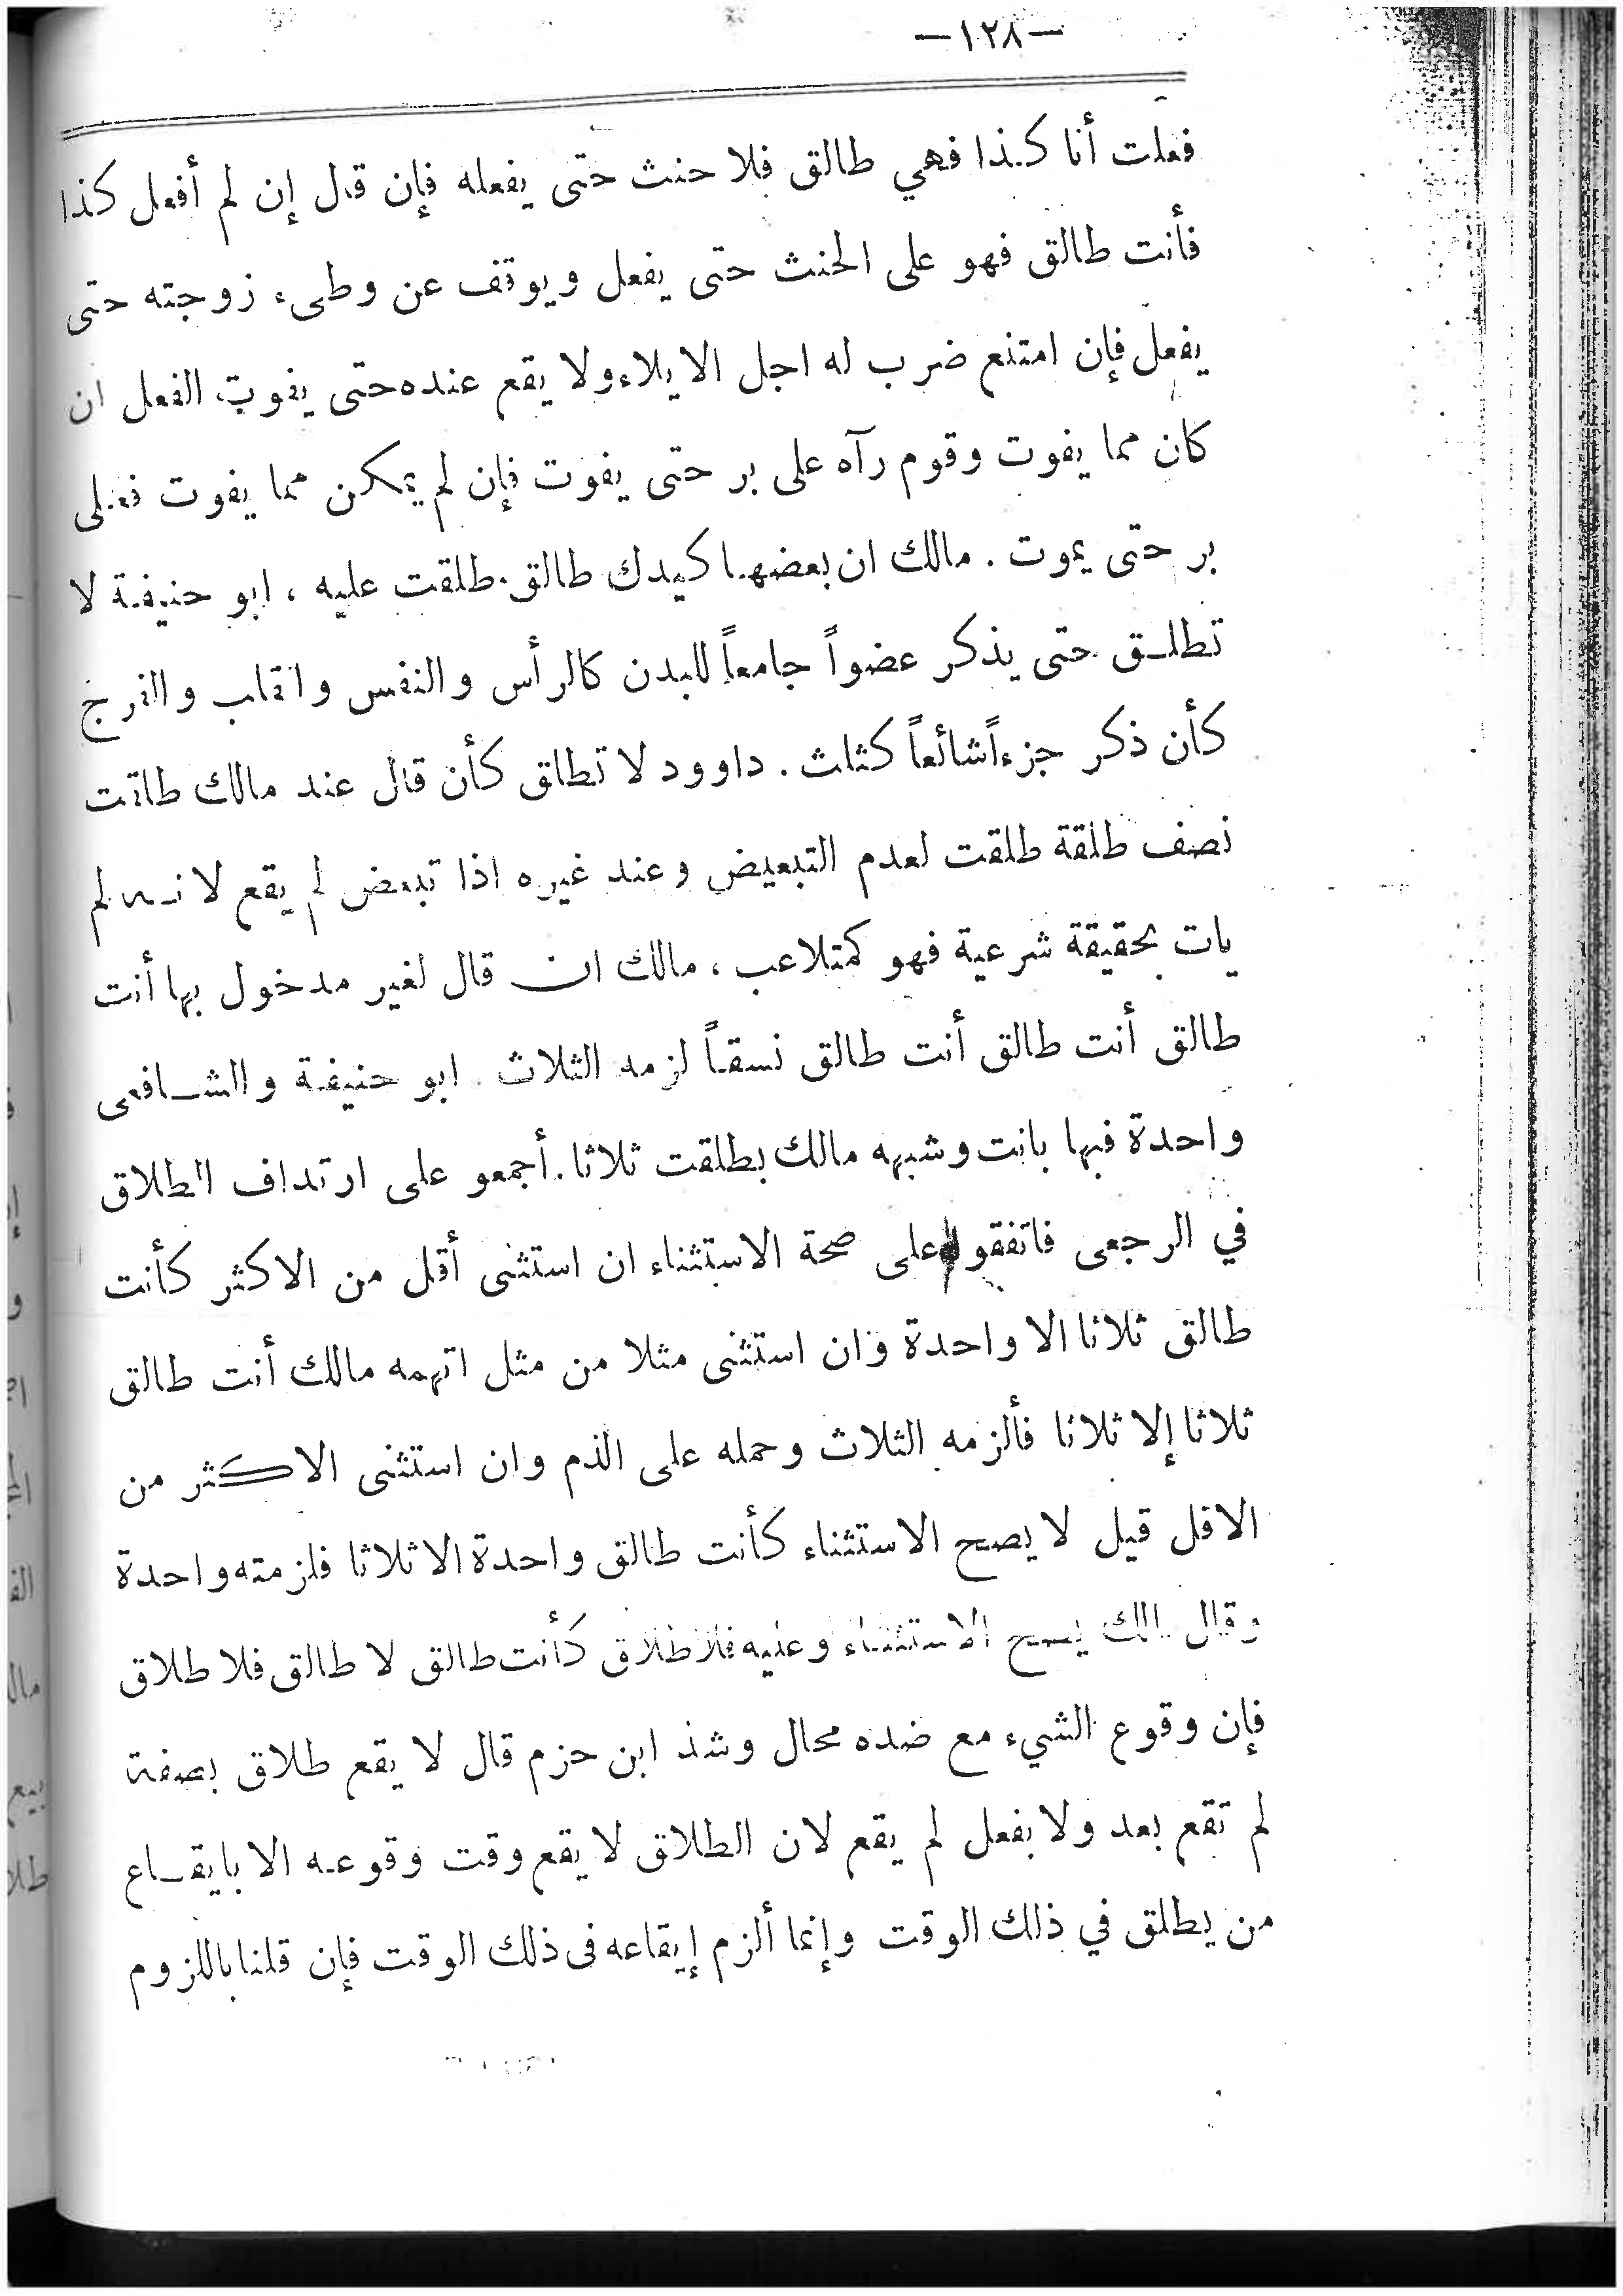 —١٢٨—
فعلت أنا كذا فهي طالق فلا حنث حتى يفعله فإن قال إن لم أفعل كذا
فأنت طالق فهو على الحنث حتى يفعل ويوقف عن وطىء زوجته حتى
يفعل فإن امتنع ضرب له اجل الايلاء ولا يقع عنده حتى يفوت الفعل ان
كان مما يفوت وقوم رآه على بر حتى يفوت فإن لم يمكن مما يفوت فعلى
بر حتى يموت . مالك ان بعضها كيدك طالق طلقت عليه ، ابو حنيفة لا
تطلق حتى يذكر عضواً جامعاً للبدن كالرأس والنفس والقلب والفرج
كأن ذكر جزءاً شائعاً كثلث . داوود لا تطلق كأن قال عند مالك طلقت
نصف طلقة طلقت لعدم التبعيض وعند غيره اذا تبعض لم يقع لانه لم
يات بحقيقة شرعية فهو كمتلاعب ، مالك ان قال لغير مدخول بها أنت
طالق أنت طالق أنت طالق نسقاً لزمه الثلاث . ابو حنيفة والشافعى
واحدة فبها بانت وشبهه مالك بطلقت ثلاثا . أجمعو على ارتداف الطلاق
في الرجعى فاتفقوا على صحة الاستثناء ان استثنى أقل من الاكثر كأنت
طالق ثلاثا الا واحدة وان استثنى مثلا من مثل اتهمه مالك أنت طالق
ثلاثا إلا ثلاثا فألزمه الثلاث وحمله على الذم وان استثنى الاكثر من
الاقل قيل لا يصح الاستثناء كأنت طالق واحدة الا ثلاثا فلزمته واحدة
وقال مالك يصح الاستثناء وعليه فلا طلاق كأنت طالق لا طالق فلا طلاق
فإن وقوع الشيء مع ضده محال وشذ ابن حزم قال لا يقع طلاق بصفة
لم تقع بعد ولا بفعل لم يقع لان الطلاق لا يقع وقت وقوعه الا بايقاع
من يطلق في ذلك الوقت وإنما ألزم إيقاعه فى ذلك الوقت فإن قلنا باللزوم